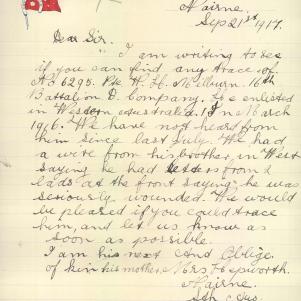 Nairne.
Sep 21st 1917.
Dear Sir.
I am writing to see
if you can find any trace of
No 6295. Pte H. H. Milburn. 16th
Battalion D. Company. He enlisted
in Western Australia. 1st March
1916. We have not heard from
him since last July. We had
a wire from his brother, in West
saying he had letters from 2
lads at the front saying he was
seriously wounded. We would
be pleased if you could trace
him, and let us know as
soon as possible.
I am his next And Oblige.
of kin his mother, Mrs Hepworth.
Nairne.
Sth Aus.